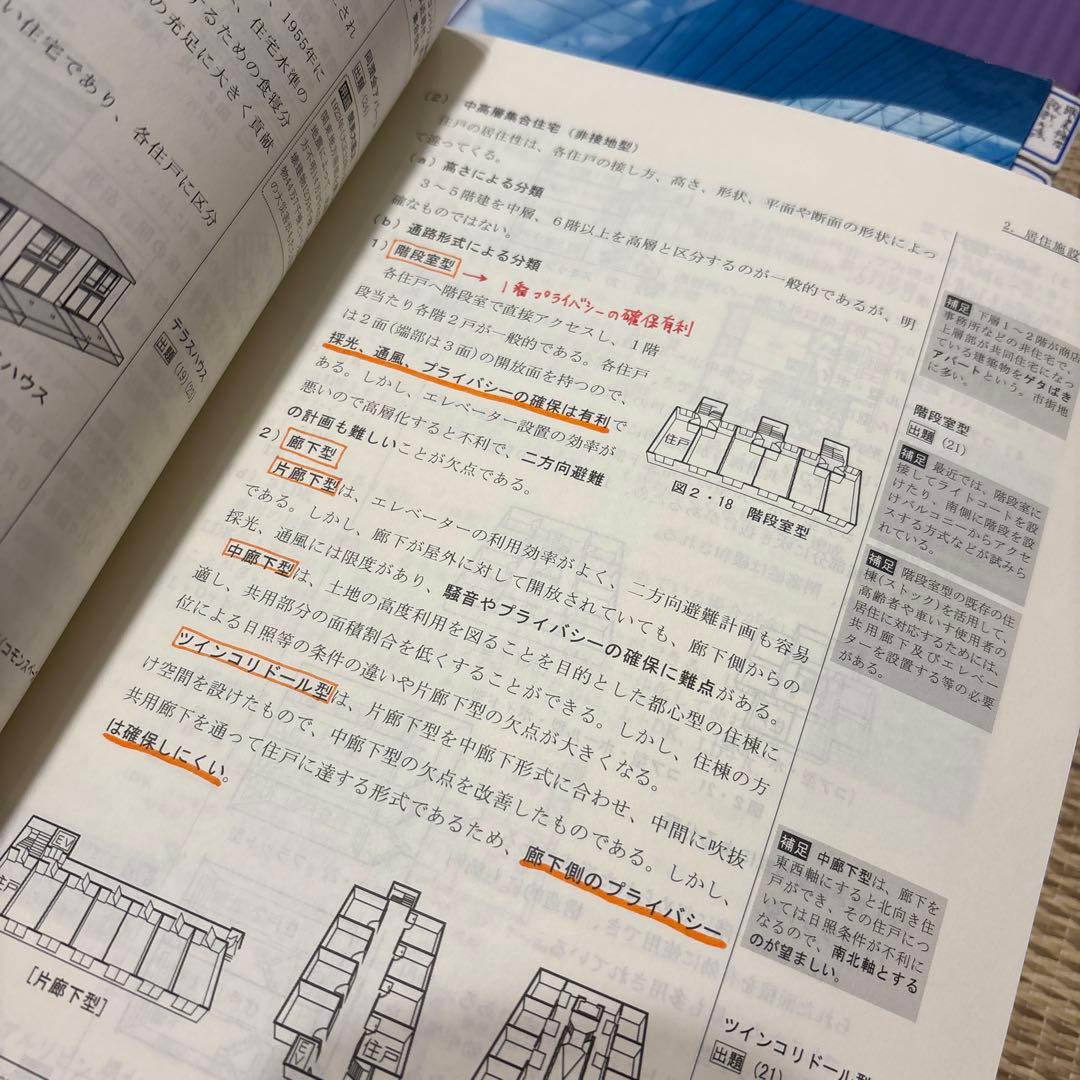 され
、1955年に
、住宅水準の
するための食寝分
の充足に大きく貢献
い住宅であり、各住戸に区分
出題 (20)
テラスハウス
出題 (19)(23)
ハウス
(2) 中高層集合住宅(非接地型)
住戸の居住性は、各住戸の接し方、高さ、形状、平面や断面の形状によっ
て違ってくる。
(a) 高さによる分類
3〜5階建を中層、6階以上を高層と区分するのが一般的であるが、明
確なものではない。
(b) 通路形式による分類
1) 階段室型 → 1番プライバシーの確保有利
各住戸へ階段室で直接アクセスし、1階
段当たり各階2戸が一般的である。各住戸
は2面(端部は3面)の開放面を持つので、
採光、通風、プライバシーの確保は有利で
ある。しかし、エレベーター設置の効率が
悪いので高層化すると不利で、二方向避難
の計画も難しいことが欠点である。
住戸
図2・18 階段室型
2) 廊下型
片廊下型は、エレベーターの利用効率がよく、二方向避難計画も容易
である。しかし、廊下が屋外に対して開放されていても、廊下側からの
採光、通風には限度があり、騒音やプライバシーの確保に難点がある。
中廊下型は、土地の高度利用を図ることを目的とした都心型の住棟に
適し、共用部分の面積割合を低くすることができる。しかし、住棟の方
位による日照等の条件の違いや片廊下型の欠点が大きくなる。
ツインコリドール型は、片廊下型を中廊下形式に合わせ、中間に吹抜
け空間を設けたもので、中廊下型の欠点を改善したものである。しかし、
共用廊下を通って住戸に達する形式であるため、廊下側のプライバシー
は確保しにくい。
EV
住戸
[片廊下型]
EV
住戸
2. 居住施設
補足 下層1〜2階が商店
事務所などの非住宅で、
上層部が共同住宅になっ
ている建築物をゲタばき
アパートという。市街地
に多い。
階段室型
出題 (21)
補足 最近では、階段室に
接してライトコートを設
けたり、南側に階段を設
けバルコニーからアクセ
スする方式などが試みら
れている。
補足 階段室型の既存の住
棟(ストック)を活用して、
高齢者や車いす使用者の
居住に対応するためには、
共用廊下及びエレベー
ターを設置する等の必要
がある。
補足 中廊下型は、廊下を
東西軸にすると北向き住
戸ができ、その住戸につ
いては日照条件が不利に
なるので、南北軸とする
のが望ましい。
ツインコリドール型
出題 (21)